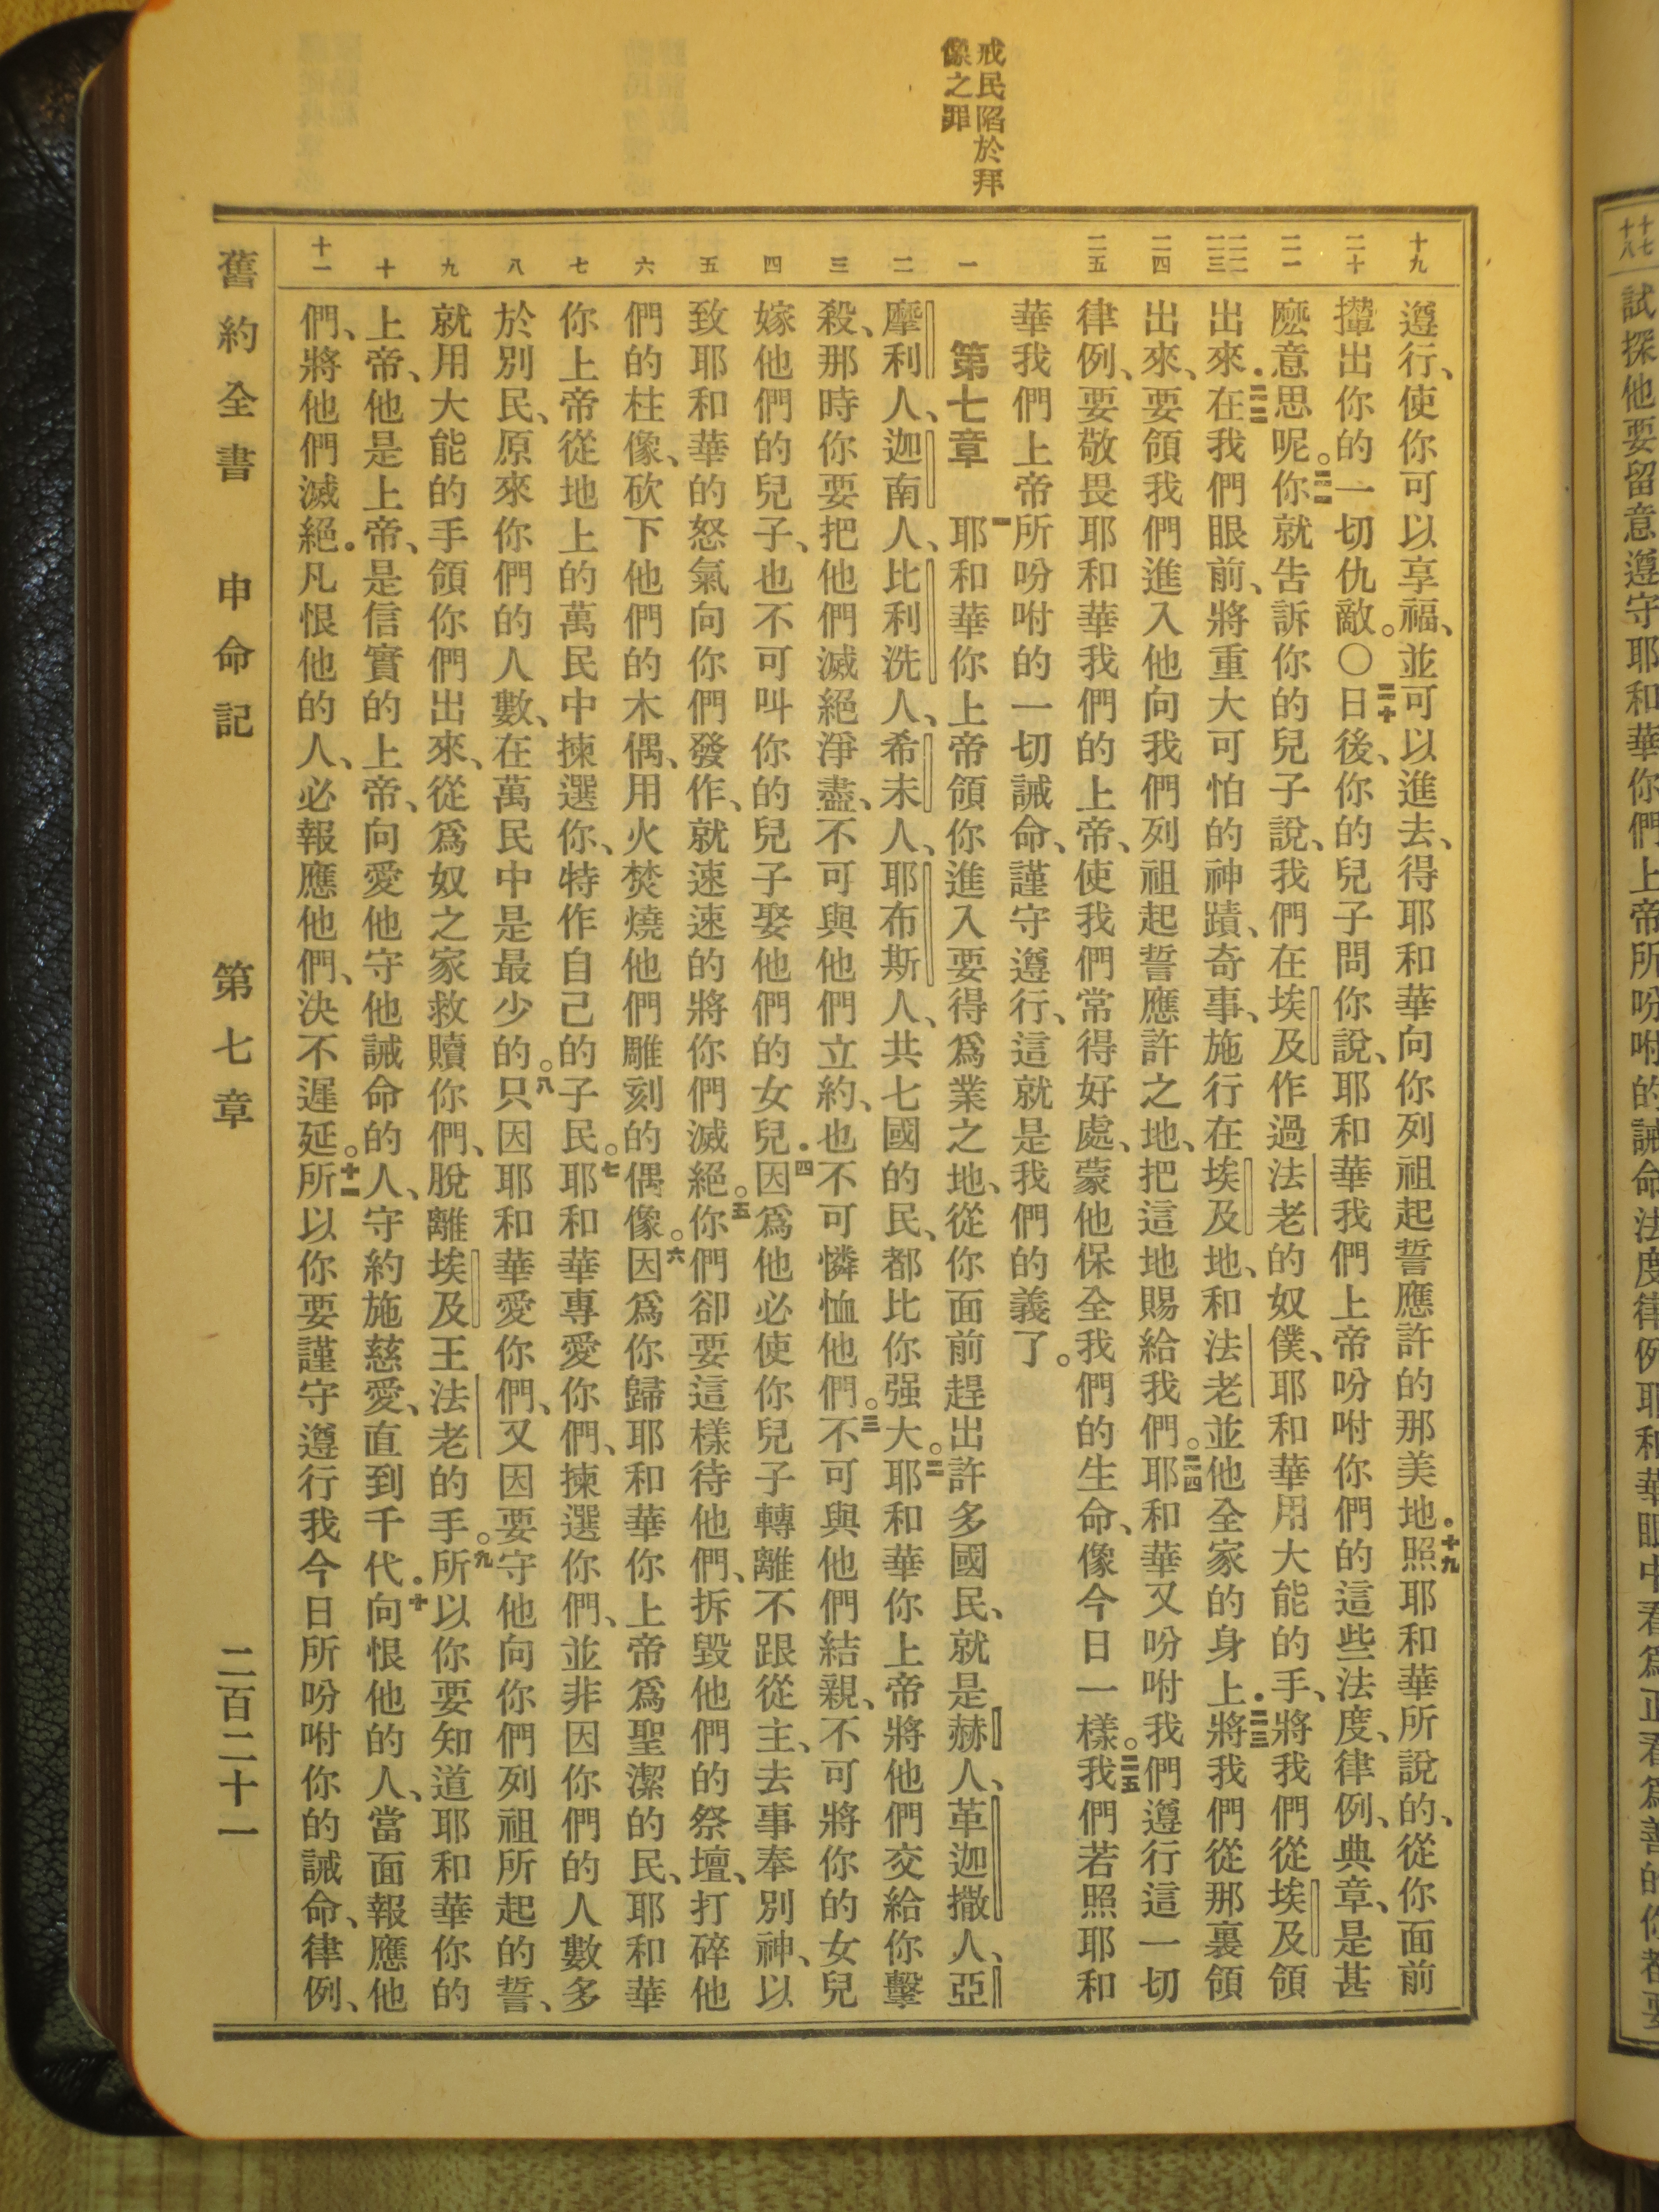 戒民陷於拜
像之罪
十九
二十
二一
二二
二三
二四
二五
一
二
三
四
五
六
七
八
九
十
十一
遵行、使你可以享福、並可以進去、得耶和華向你列祖起誓應許的那美地．十九照耶和華所說的、從你面前
攆出你的一切仇敵。〇二十日後、你的兒子問你說、耶和華我們上帝吩咐你們的這些法度、律例、典章、是甚
麽意思呢。二一你就告訴你的兒子說、我們在埃及作過法老的奴僕、耶和華用大能的手、將我們從埃及領
出來．二二在我們眼前、將重大可怕的神蹟、奇事、施行在埃及地、和法老並他全家的身上．二三將我們從那裏領
出來、要領我們進入他向我們列祖起誓應許之地、把這地賜給我們。二四耶和華又吩咐我們遵行這一切
律例、要敬畏耶和華我們的上帝、使我們常得好處、蒙他保全我們的生命、像今日一樣。二五我們若照耶和
華我們上帝所吩咐的一切誡命、謹守遵行、這就是我們的義了。
第七章 一耶和華你上帝領你進入要得爲業之地、從你面前趕出許多國民、就是赫人、革迦撒人、亞
摩利人、迦南人、比利洗人、希未人、耶布斯人、共七國的民、都比你强大。二耶和華你上帝將他們交給你擊
殺、那時你要把他們滅絕淨盡、不可與他們立約、也不可憐恤他們。三不可與他們結親、不可將你的女兒
嫁他們的兒子、也不可叫你的兒子娶他們的女兒．四因爲他必使你兒子轉離不跟從主、去事奉別神、以
致耶和華的怒氣向你們發作、就速速的將你們滅絕。五你們卻要這樣待他們、拆毀他們的祭壇、打碎他
們的柱像、砍下他們的木偶、用火焚燒他們雕刻的偶像。六因爲你歸耶和華你上帝爲聖潔的民、耶和華
你上帝從地上的萬民中揀選你、特作自己的子民。七耶和華專愛你們、揀選你們、並非因你們的人數多
於別民、原來你們的人數、在萬民中是最少的。八只因耶和華愛你們、又因要守他向你們列祖所起的誓、
就用大能的手領你們出來、從爲奴之家救贖你們、脫離埃及王法老的手。九所以你要知道耶和華你的
上帝、他是上帝、是信實的上帝、向愛他守他誡命的人、守約施慈愛、直到千代．十向恨他的人、當面報應他
們、將他們滅絕．凡恨他的人、必報應他們、決不遲延。十一所以你要謹守遵行我今日所吩咐你的誡命、律例、
舊約全書 申命記 第七章 二百二十一
十七
十八
試探他要留意遵守耶和華你們上帝所吩咐的誡命法度律例耶和華眼中看爲正看爲善的你都要